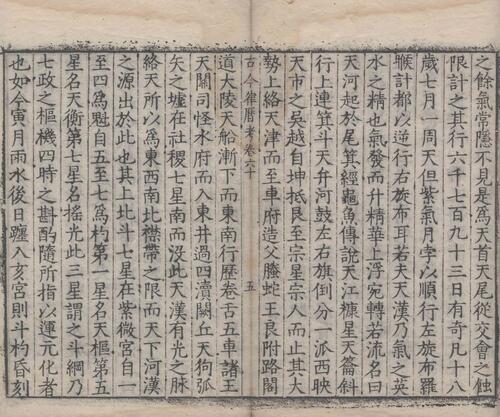 之餘氣常隱不見是爲天首天尾從交會之蝕
限計之其行六千七百九十三日有奇凡十八
歲七月一周天但紫氣月孛以順行左旋布羅
睺計都以逆行右旋布耳若夫天漢乃氣之英
水之精也氣發而升精華上浮宛轉若流名曰
天河起於尾箕經龜魚傳說天江糠星天籥斜
行上連箕斗天弁河鼓左右旗倒分一派西映
天市之吳越自坤抵艮至宗星宗人而止其正
勢上絡天津而至車府造父螣蛇王良附路閣
古今律曆考卷六十
五
道大陵天船漸下而東南行歷卷古五車諸王
天關司怪水府而入東井過四瀆闕丘天狗弧
矢之墟在社稷七星南而没此天漢有光之脉
絡天所以爲東西南北襟帶之限而天下河漢
之源出於此也其上北斗七星在紫微宮自一
至四爲魁自五至七爲杓第一星名天樞第五
星名天衡第七星名搖光此三星謂之斗綱乃
七政之樞機四時之斟酌隨所指以運元化者
也如今寅月雨水後日躔入亥宮則斗杓昏刻